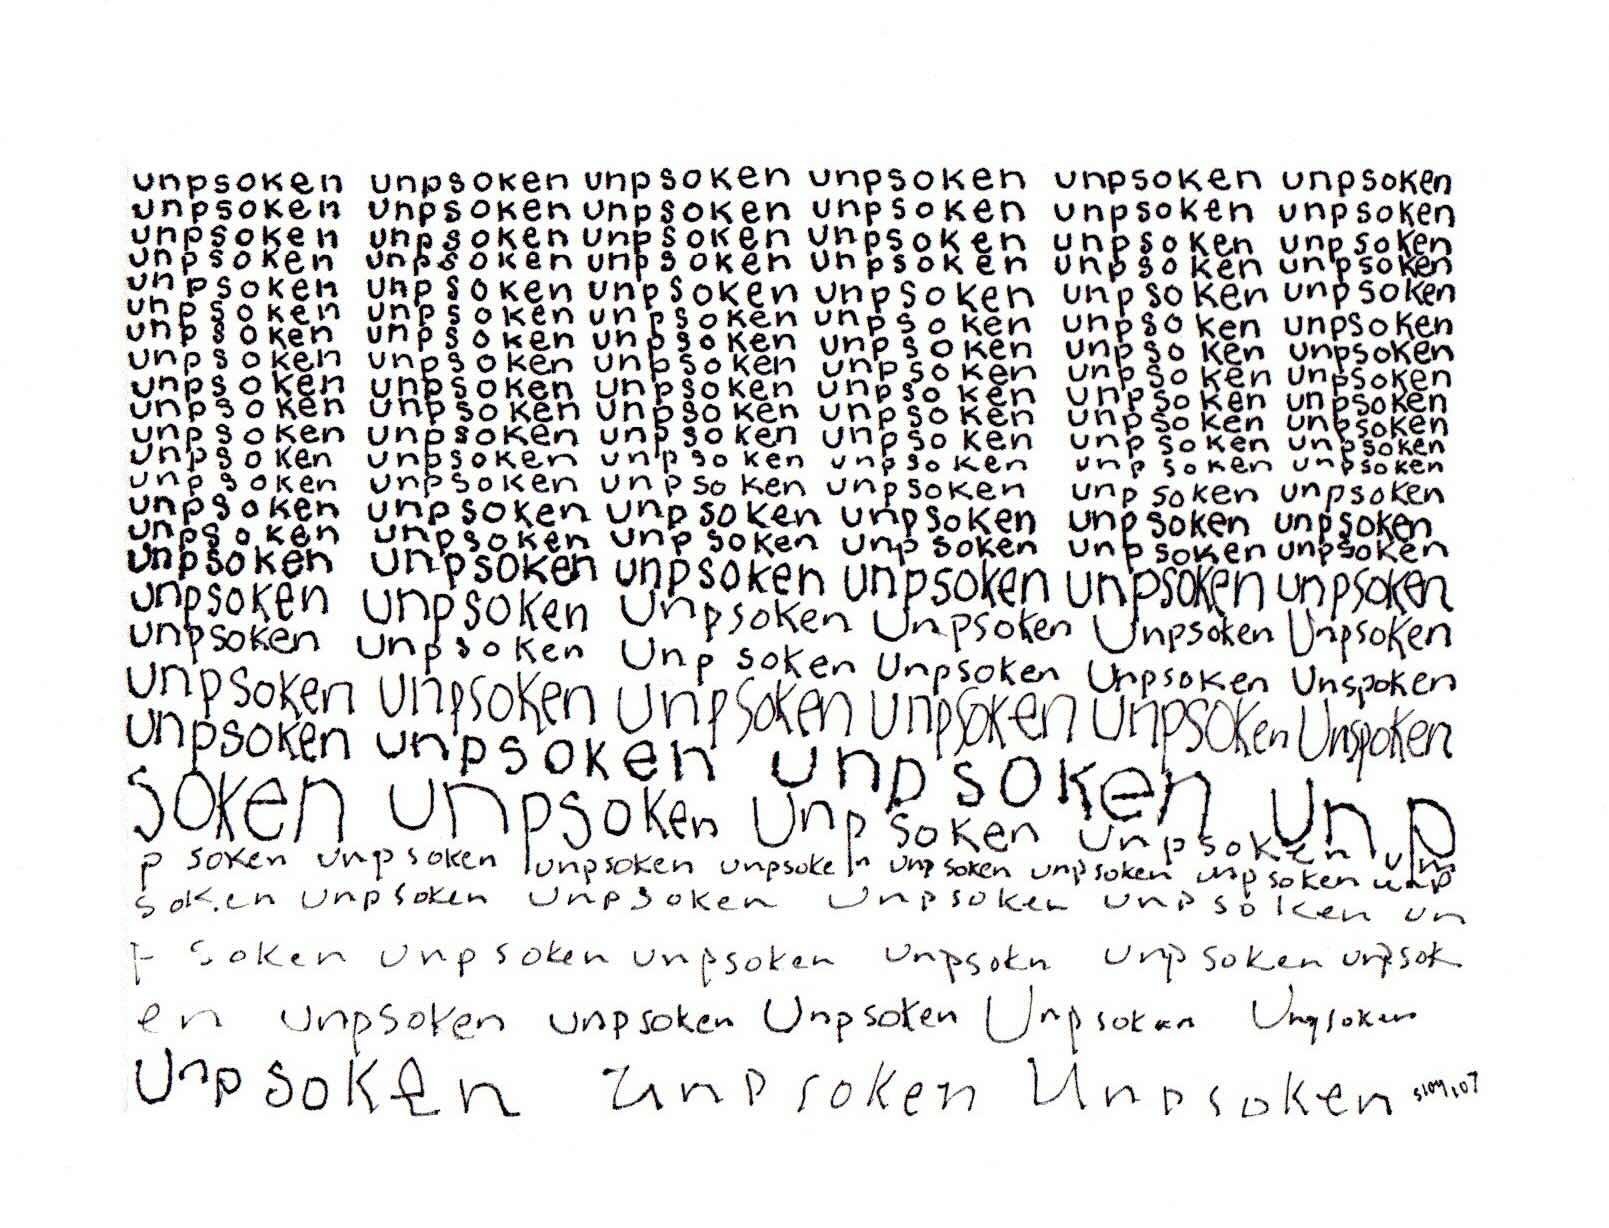 unpsoken unpsoken unpsoken unpsoken unpsoken unpsoken
unpsoken unpsoken unpsoken unpsoken unpsoken unpsoken
unpsoken unpsoken unpsoken unpsoken unpsoken unpsoken
unpsoken unpsoken unpsoken unpsoken unpsoken unpsoken
unpsoken unpsoken unpsoken unpsoken unpsoken unpsoken
unpsoken unpsoken unpsoken unpsoken unpsoken unpsoken
unpsoken unpsoken unpsoken unpsoken unpsoken unpsoken
unpsoken unpsoken unpsoken unpsoken unpsoken unpsoken
unpsoken unpsoken unpsoken unpsoken unpsoken unpsoken
unpsoken unpsoken unpsoken unpsoken unpsoken unpsoken
unpsoken unpsoken unpsoken unpsoken unpsoken unpsoken
unpsoken unpsoken unpsoken unpsoken unpsoken unpsoken
unpsoken unpsoken unpsoken unpsoken unpsoken unpsoken
unpsoken unpsoken unpsoken unpsoken unpsoken unpsoken
unpsoken unpsoken unpsoken unpsoken unpsoken unpsoken
unpsoken unpsoken unpsoken unpsoken unpsoken unpsoken
unpsoken unpsoken Unpsoken Unpsoken Unpsoken Unpsoken
unpsoken unpsoken Unpsoken Unpsoken Unpsoken Unspoken
unpsoken unpsoken Unpsoken unpsoken Unpsoken Unspoken
unpsoken unpsoken unpsoken unp
soken unpsoken Unpsoken unpsoken un
p soken unpsoken unpsoken unpsoken unpsoken unpsoken unpsoken unp
soken unpsoken unpsoken Unpsoken unpsoken un
p soken unpsoken unpsoken unpsokn unpsoken unpsok
en unpsoken unpsoken Unpsoken Unpsoken Unpsoken
Unpsoken unpsoken Unpsoken